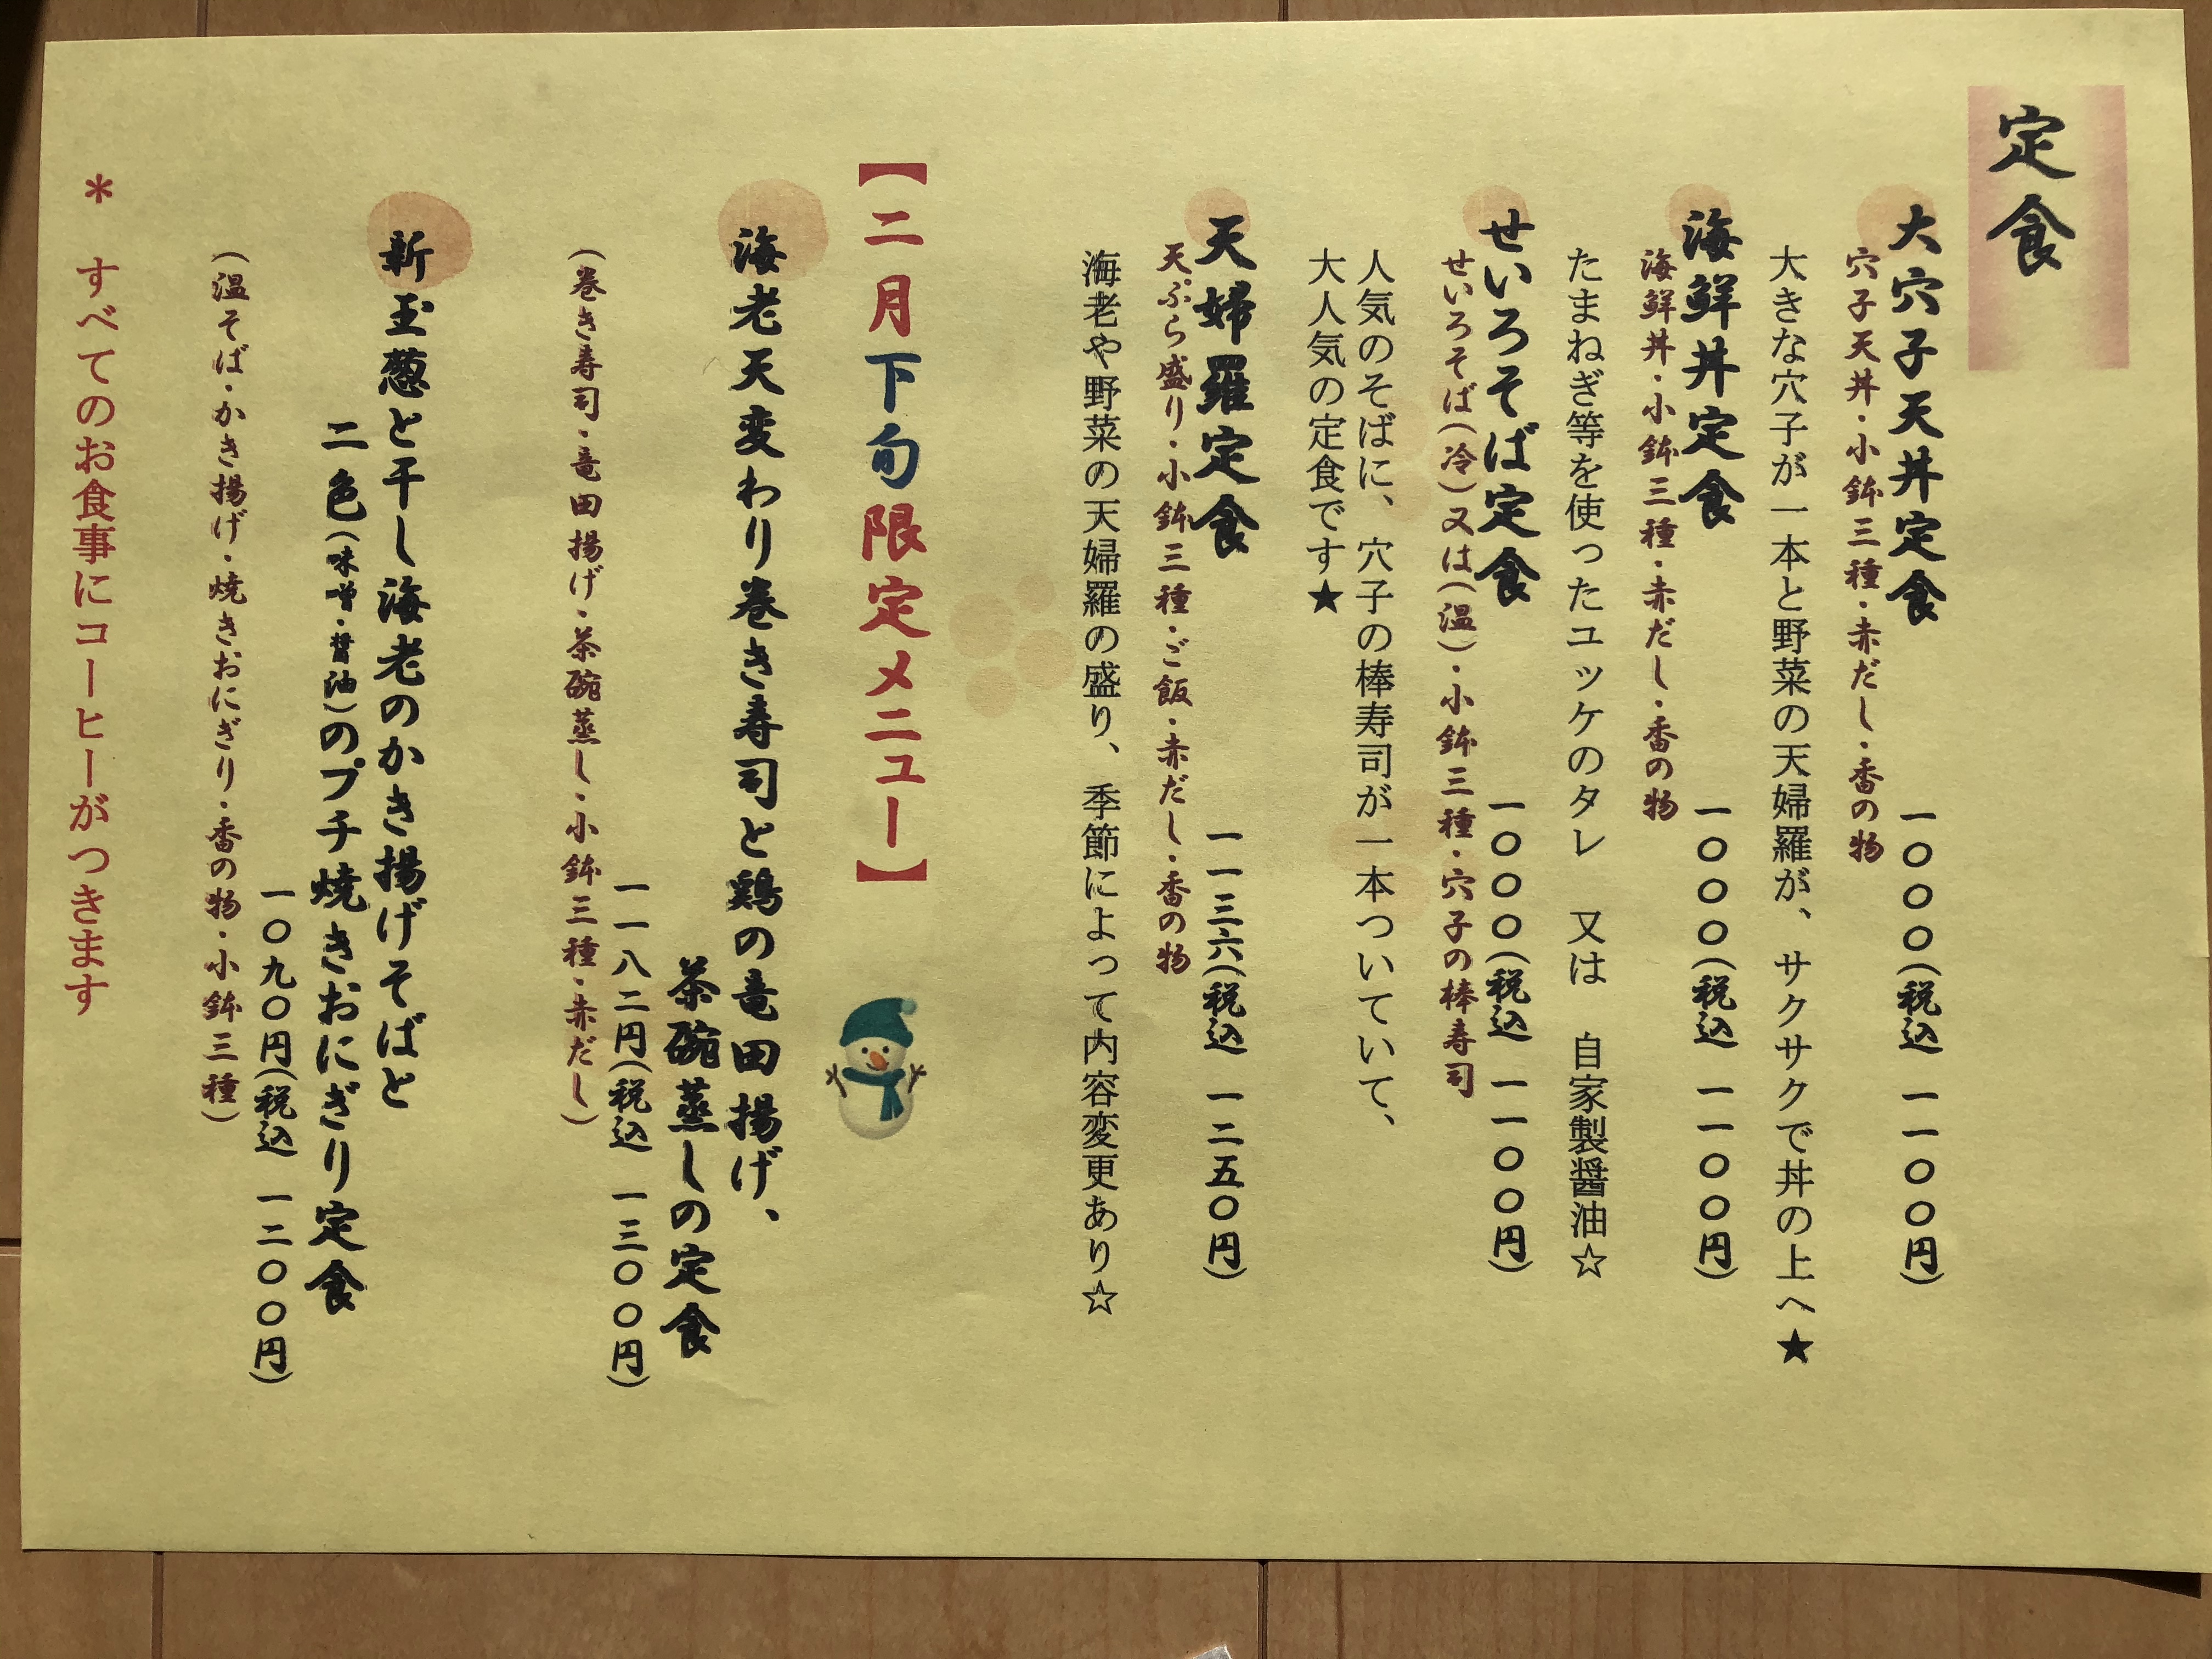 定食
大穴子天丼定食 一〇〇〇(税込 一一〇〇円)
穴子天丼・小鉢三種・赤だし・香の物
大きな穴子が一本と野菜の天婦羅が、サクサクで丼の上へ★
海鮮丼定食 一〇〇〇(税込 一一〇〇円)
海鮮丼・小鉢三種・赤だし・香の物
たまねぎ等を使ったユッケのタレ 又は 自家製醤油☆
せいろそば定食 一〇〇〇(税込 一一〇〇円)
せいろそば(冷)又は(温)・小鉢三種・穴子の棒寿司
人気のそばに、穴子の棒寿司が一本ついていて、
大人気の定食です★
天婦羅定食 一一三六(税込 一二五〇円)
天ぷら盛り・小鉢三種・ご飯・赤だし・香の物
海老や野菜の天婦羅の盛り、季節によって内容変更あり☆
【二月下旬限定メニュー】
海老天変わり巻き寿司と鶏の竜田揚げ、
茶碗蒸しの定食
一一八二円(税込 一三〇〇円)
(巻き寿司・竜田揚げ・茶碗蒸し・小鉢三種・赤だし)
新玉葱と干し海老のかき揚げそばと
二色(味噌・醤油)のプチ焼きおにぎり定食
一〇九〇円(税込 一二〇〇円)
(温そば・かき揚げ・焼きおにぎり・香の物・小鉢三種)
* すべてのお食事にコーヒーがつきます